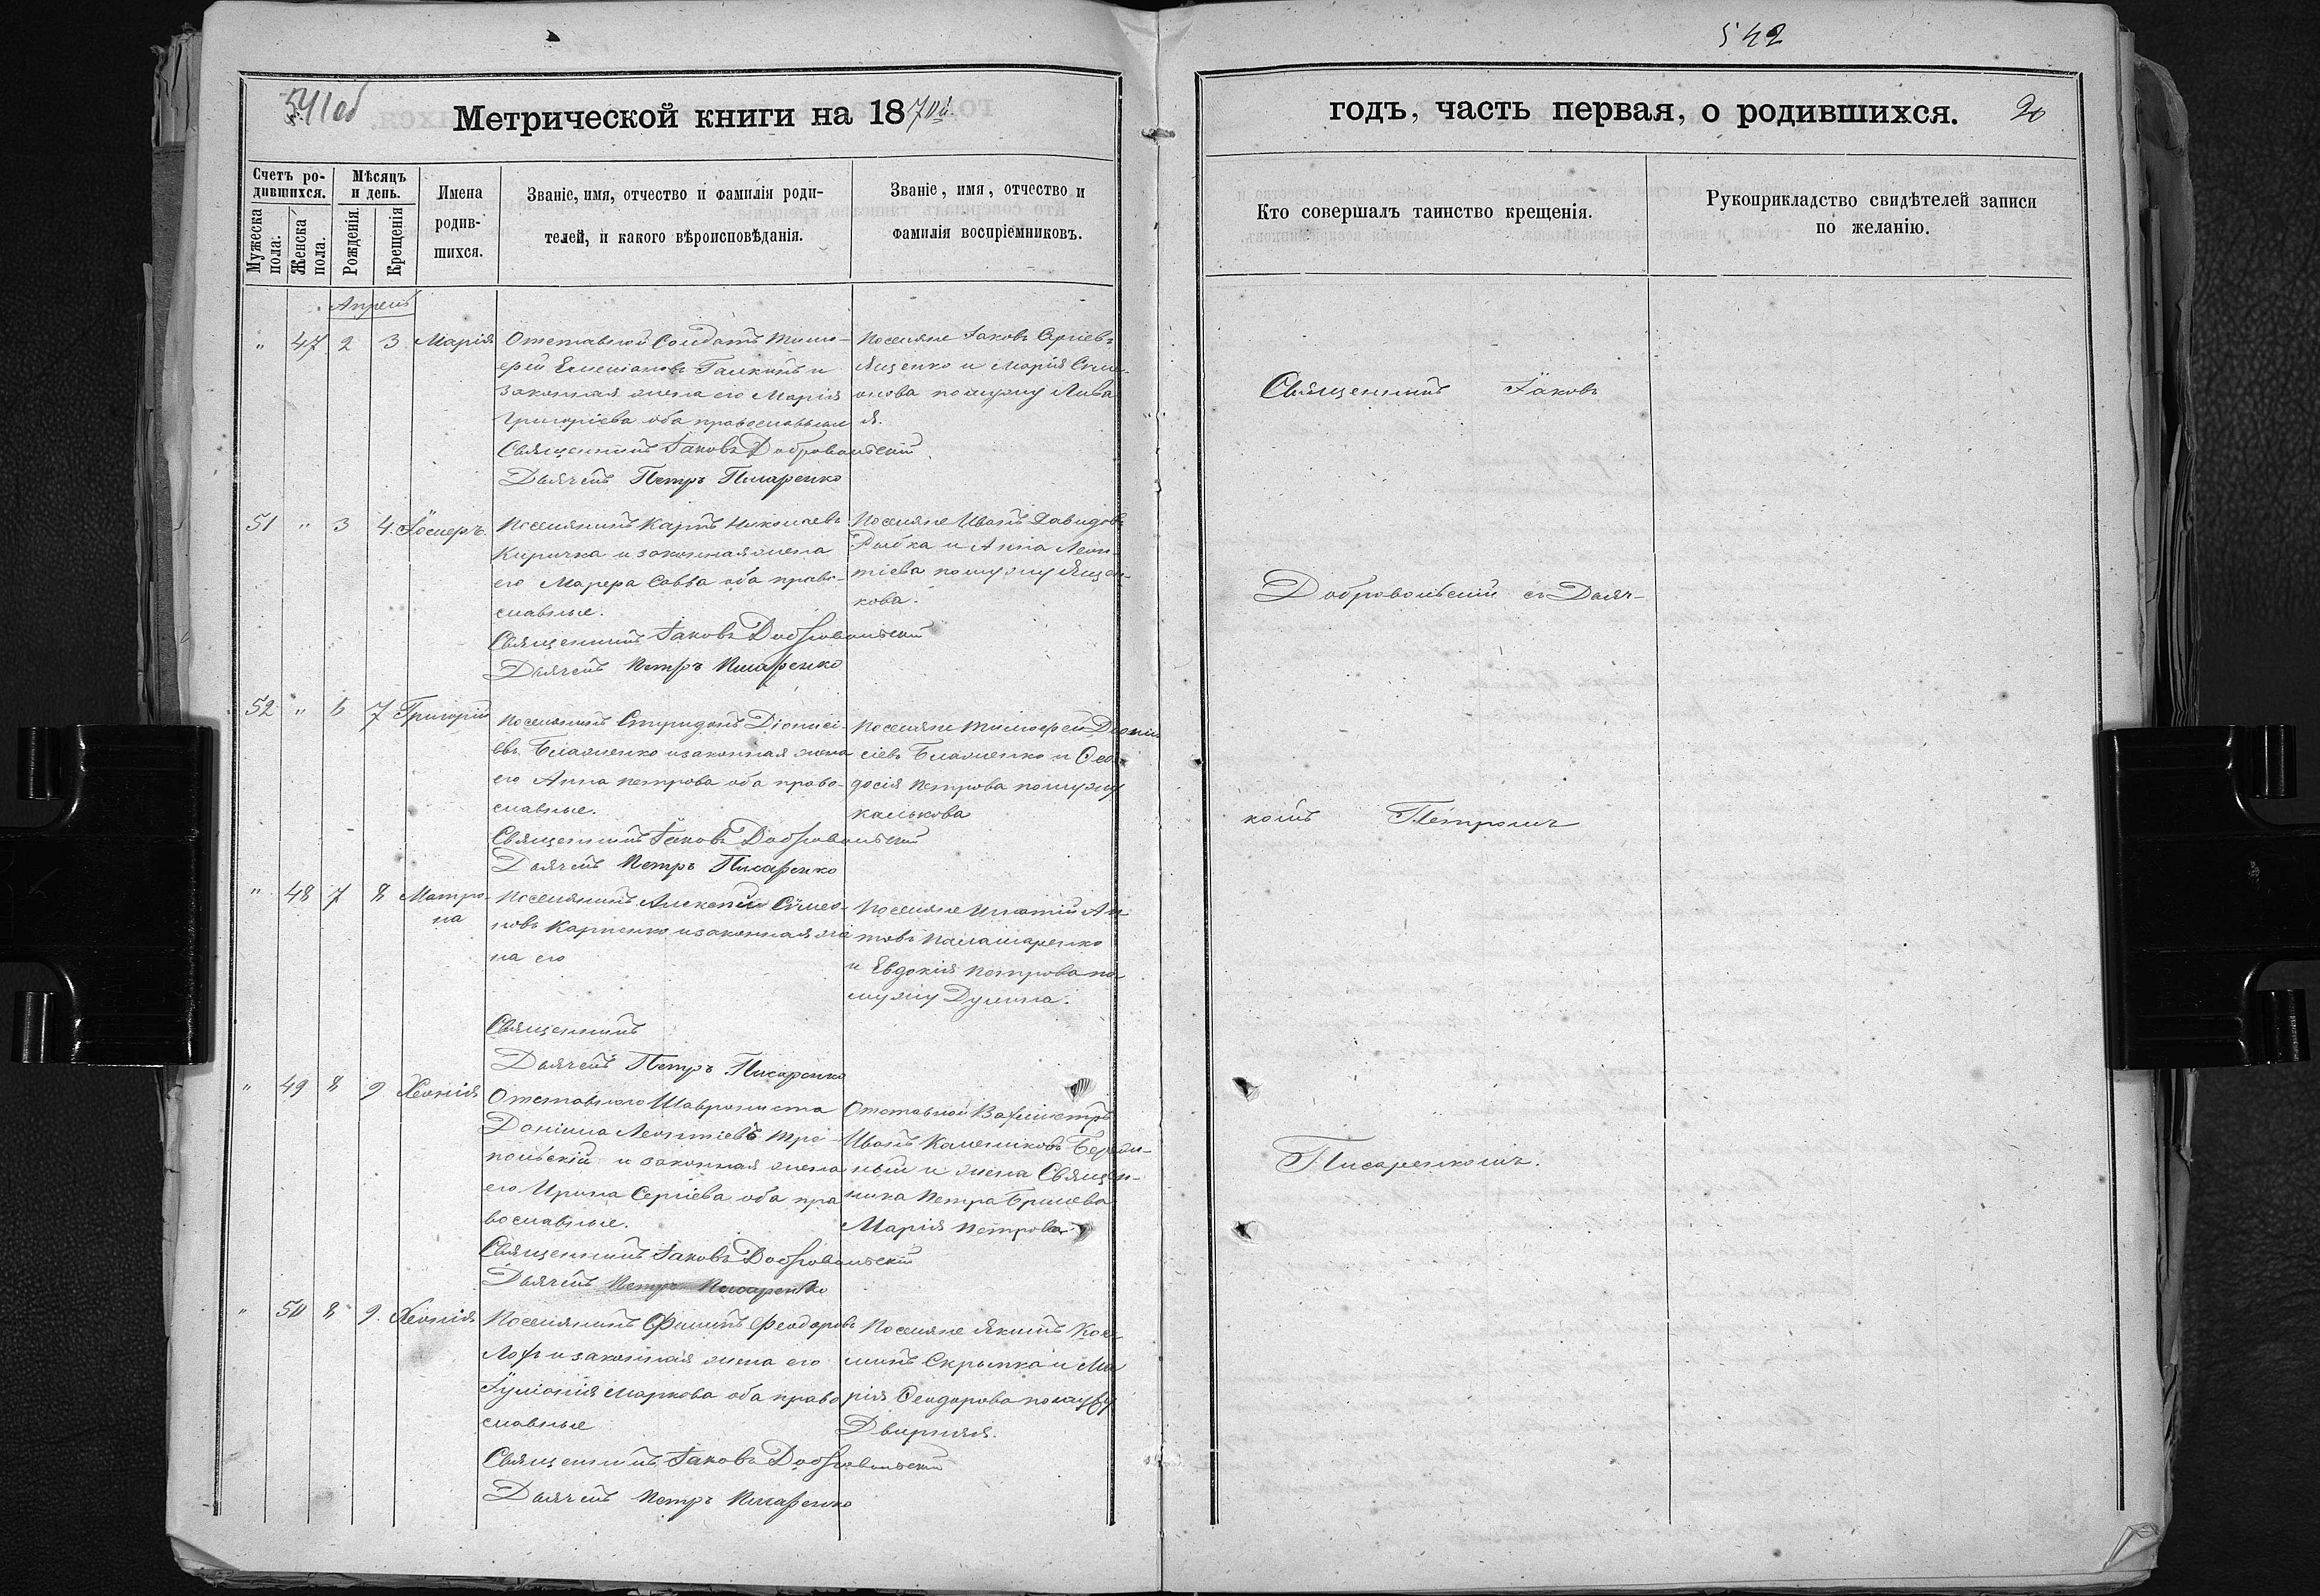 541об
Метрической книги на 1870й
Счетъ ро-
дившихся.
Мѣсяцъ
и день.
Мужеска
пола.
Женска
пола.
Рожденія.
Крещенія
Имена
родив-
шихся.
Званіе, имя, отчество и фамилія роди-
телей, и какого вѣроисповѣданія.
Званіе, имя, отчество и
фамилія воспріемниковъ.
Апрель
" 47 2 3 Марія
Отставной Солдатъ Тимо-
фей Емеліановъ Галкинъ и
законная жена его Марія
Григоріева оба православные
Священникъ Іаковъ Добровольскій
Дьячекъ Петръ Писаренко
Поселяне Іаковъ Сергіевъ
Яценко и Марія Симе-
онова по мужу
я.
51 " 3 4.
Поселянинъ Карпъ Николаевъ
Киричка и законная жена
его Марфа Савва оба право-
славные.
Священникъ Іаковъ Добровольскій
Дьячекъ Петръ Писаренко
Поселяне Иванъ Давидовъ
Рыбка и Анна Леон-
тіева по мужу Яцен-
кова.
52 " 6 7 Григорій
Поселянинъ Спиридонъ Діонисі-
евъ Власенко и законная жена
его Анна Петрова оба право-
славные.
Священникъ Іаковъ Добровольскій
Дьячекъ Петръ Писаренко
Поселяне Тимофей Діони
сіевъ Власенко и Фео-
досія Петрова по мужу
Калькова
" 48 7 8 Матро-
на
Поселянинъ Алексѣй Симео-
новъ Карпенко и законная же
на его
Священникъ
Дьячекъ Петръ Писаренко
Поселяне Игнатій
Паламаренко
и Евдокія Петрова по
мужу Думина.
" 49 8 9 Хеонія
Отставного
Даніила Леонтіевъ Тре-
польскій и законная жена
его Ирина Сергіева оба пра
вославные.
Священникъ Іаковъ Добровольскій
Дьячекъ Петръ Писаренко
Отставной Вахмистръ
Иванъ
и жена Священ-
ника Петра
Марія Петрова
" 50 8 9. Хеонія
Поселянинъ Филипъ Феодоровъ
и законная жена его
Іуліанія Маркова оба право
славные
Священникъ Іаковъ Добровольскій
Дьячекъ Петръ Писаренко
Поселяне Якимъ Кос-
Скрыпка и Ма
рія Феодорова по мужу
Дверняя.
542
годъ, часть первая, о родившихся. 20
Кто совершалъ таинство крещенія.
Рукоприкладство свидѣтелей записи
по желанію.
Священникъ Іаковъ
Добровольскій съ Дьяч-
комъ Петромъ
Писаренкомъ.